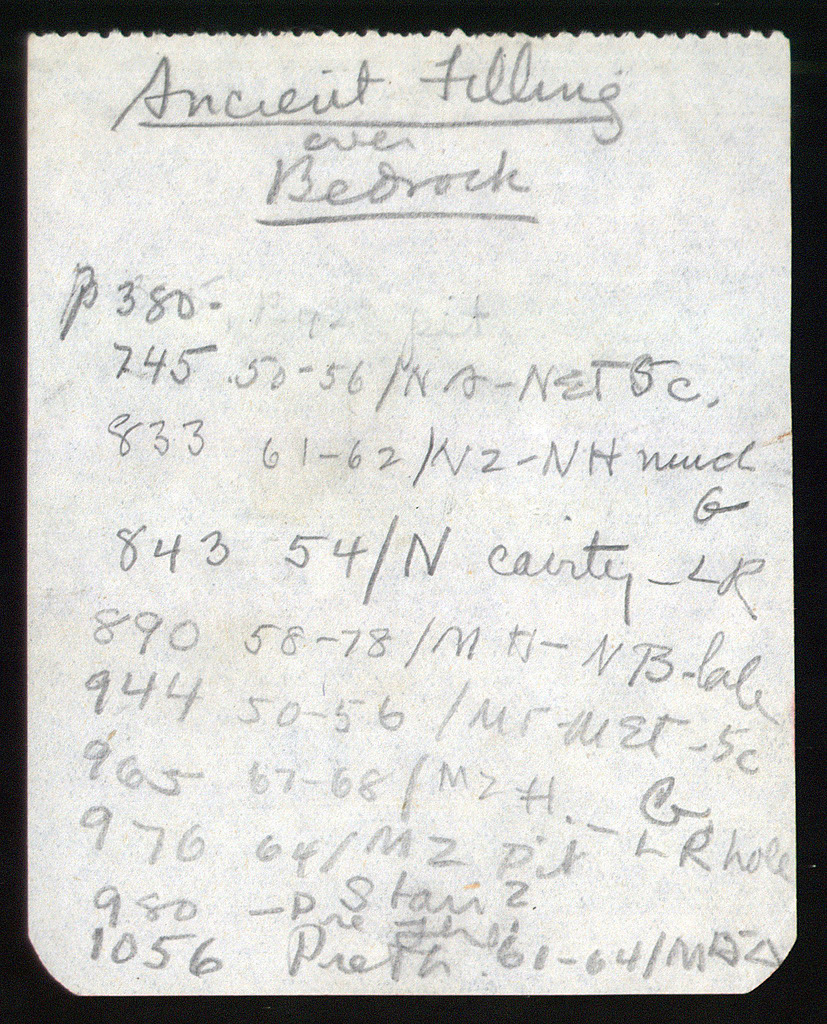 Ancient Filling
over
Bedrock
p 380. pit
745 50-56/N - NET 5c.
833 61-62/NZ-NH much
G
843 54/N cavity - LR
890 58-78/M H-NB-late
944 50-56/ - MET-5c
965 67-68/MZ H. - G
976 64/MZ pit LR hole
980 - Stair 2
1056 Preth 61-64/M